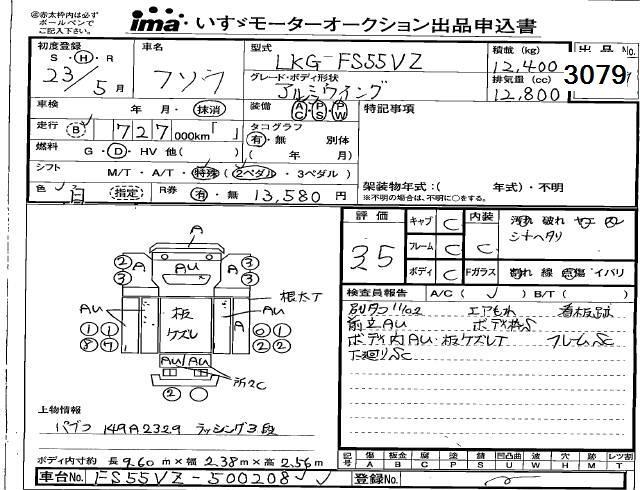 ㊟赤太枠内は必ず
ボールペンで
ご記入下さい
ima いすゞモーターオークション出品申込書
初度登録
S・H・R
23/5月
車名
フソウ
型式
LKG-FS55VZ
積載 (kg)
12,400
グレード・ボディ形状
アルミウイング
排気量 (cc)
12,800
3079
車検 年・月・抹消
装備 AC PS PW
特記事項
走行 B 727,000km「 」
タコグラフ
有・無 別体
( 年 月)
燃料 G・D・HV 他( )
シフト M/T・A/T・特殊(2ペダル・3ペダル)
架装物年式:( 年式)・不明
※不明の場合は、不明に○をする。
色 白 (指定) R券 有・無 13,580円
評価
35
キャブ C
フレーム C
ボディ C
内装 C
汚れ 破れ
シートヘタリ
Fガラス 割れ 線 飛傷・イバリ
検査員報告 A/C( ✓ ) B/T( )
エアもれ 看板跡
前立AU ボディ枠S
ボディ内AU・板ケズレT フレームSC
下廻りSC
A
② A AU A ③
③ ③
根太T
AU 板 AU
ケズレ A
① ①
⑧ ⑦ ② ②
AU/AU
所々C
②
上物情報
パブコ 149A2329 ラッシング3段
ボディ内寸約 長 9.60m×幅 2.38m×高 2.56m
記号 傷 板金 腐 塗 錆 凹凸曲 波 穴 跡 レツ割
A B C P S U W H M T
車台No. FS55VZ-500208
登録No.